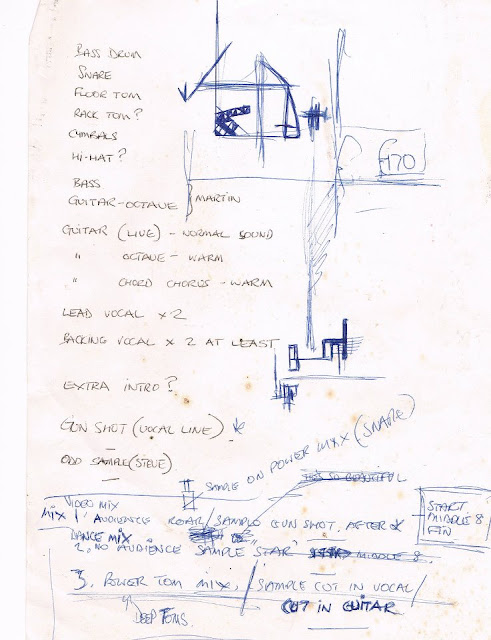 BASS DRUM
SNARE
FLOOR TOM
RACK TOM?
CYMBALS
HI-HAT?
BASS
GUITAR-OCTAVE } MARTIN
470
GUITAR (LIVE) - NORMAL SOUND
" OCTAVE - WARM
" CHORD CHORUS - WARM
LEAD VOCAL x 2
BACKING VOCAL x 2 AT LEAST
EXTRA INTRO?
GUN SHOT (VOCAL LINE)
ODD SAMPLE (STEVE)
SAMPLE ON POWER MIX (SNARE)
VIDEO MIX
MIX 1, AUDIENCE ROAR / SAMPLE GUN SHOT. AFTER
DANCE MIX
2, NO AUDIENCE SAMPLE 'STAR' MIDDLE 8.
START
MIDDLE 8
FIN
3. POWER TOM MIX. / SAMPLE CUT IN VOCAL /
CUT IN GUITAR
DEEP TOMS.